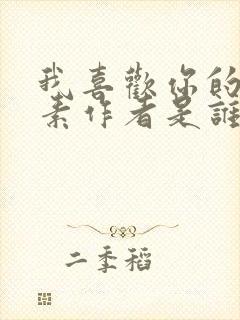 我喜歡你的
素作者是誰
二季稻